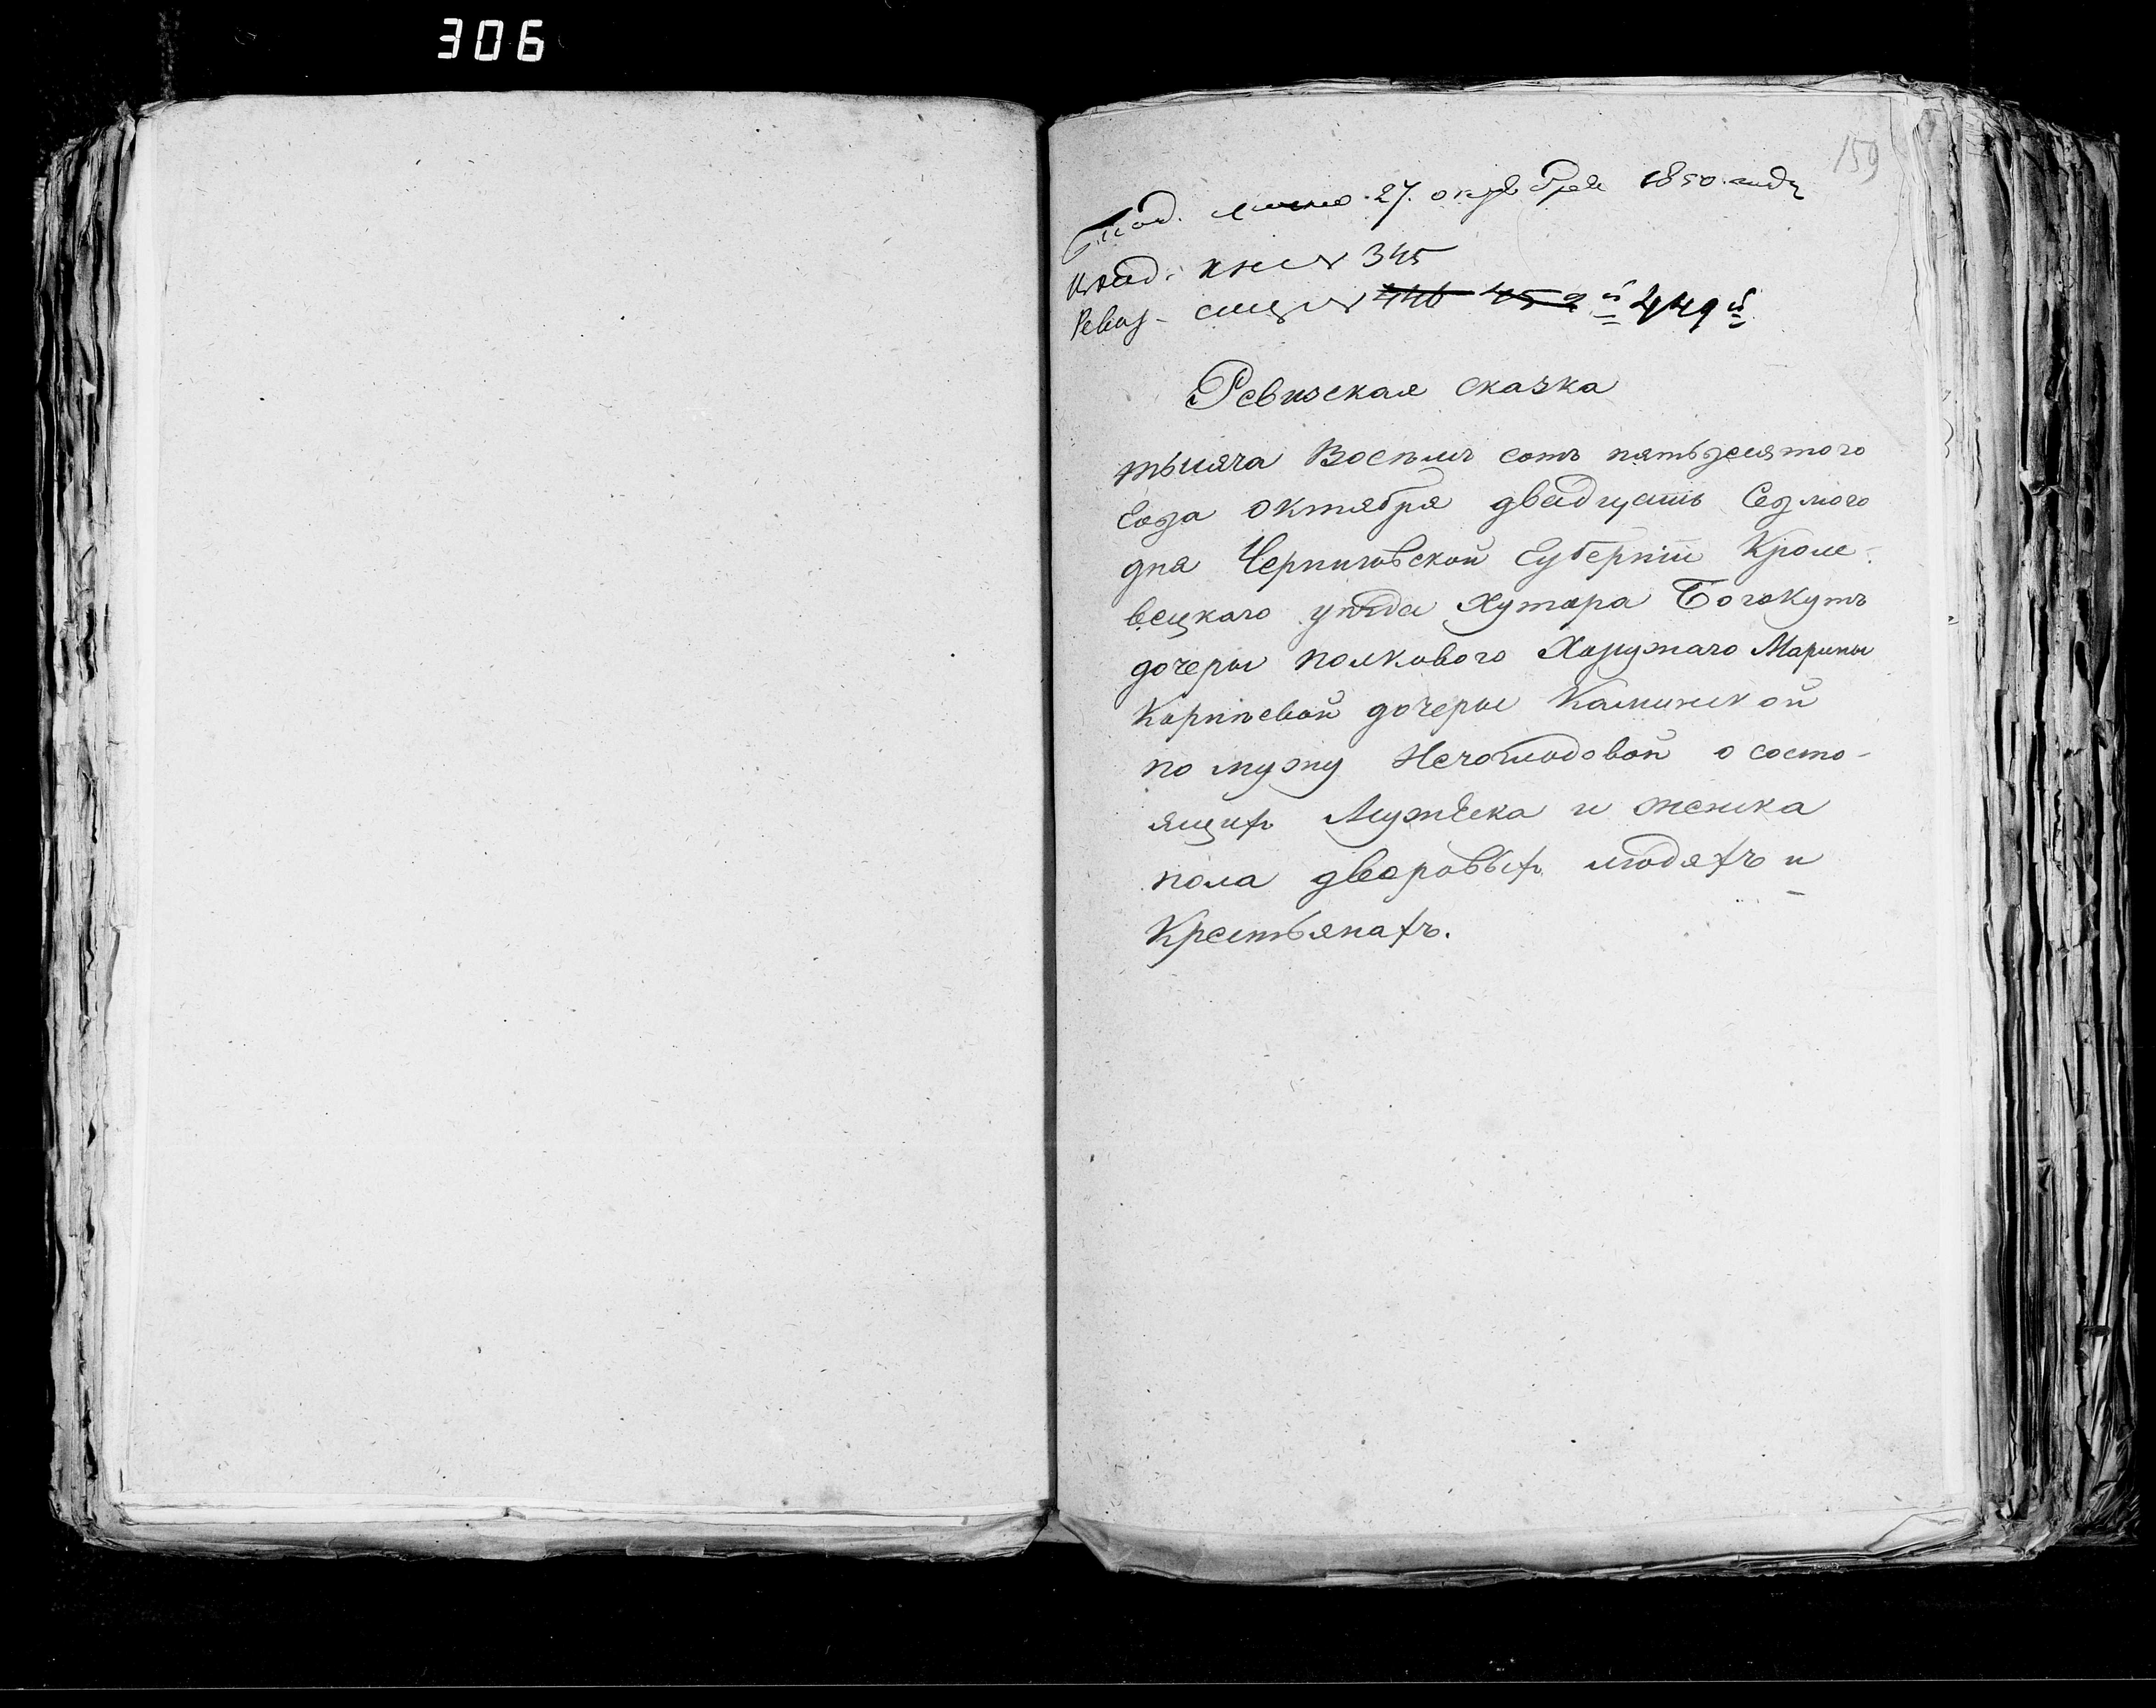 306
159
Под. лично 27. октября 1850 году
Клад. кн. № 345
Ревиз. списк. № 446 452й 449й
Ревизская сказка
тысяча Восемь сотъ пятьдесятого
Года октября двадцать Седмого
дня Черниговской Губерніи Кроле-
вецкаго уѣзда Хутора Богокутъ
дочери полкового Хорунжаго Марины
Корнѣевой дочери Каминской
по мужу Нечоглодовой о состо-
ящихъ Мужеска и женска
пола дворовыхъ людяхъ и
Крестьянахъ.